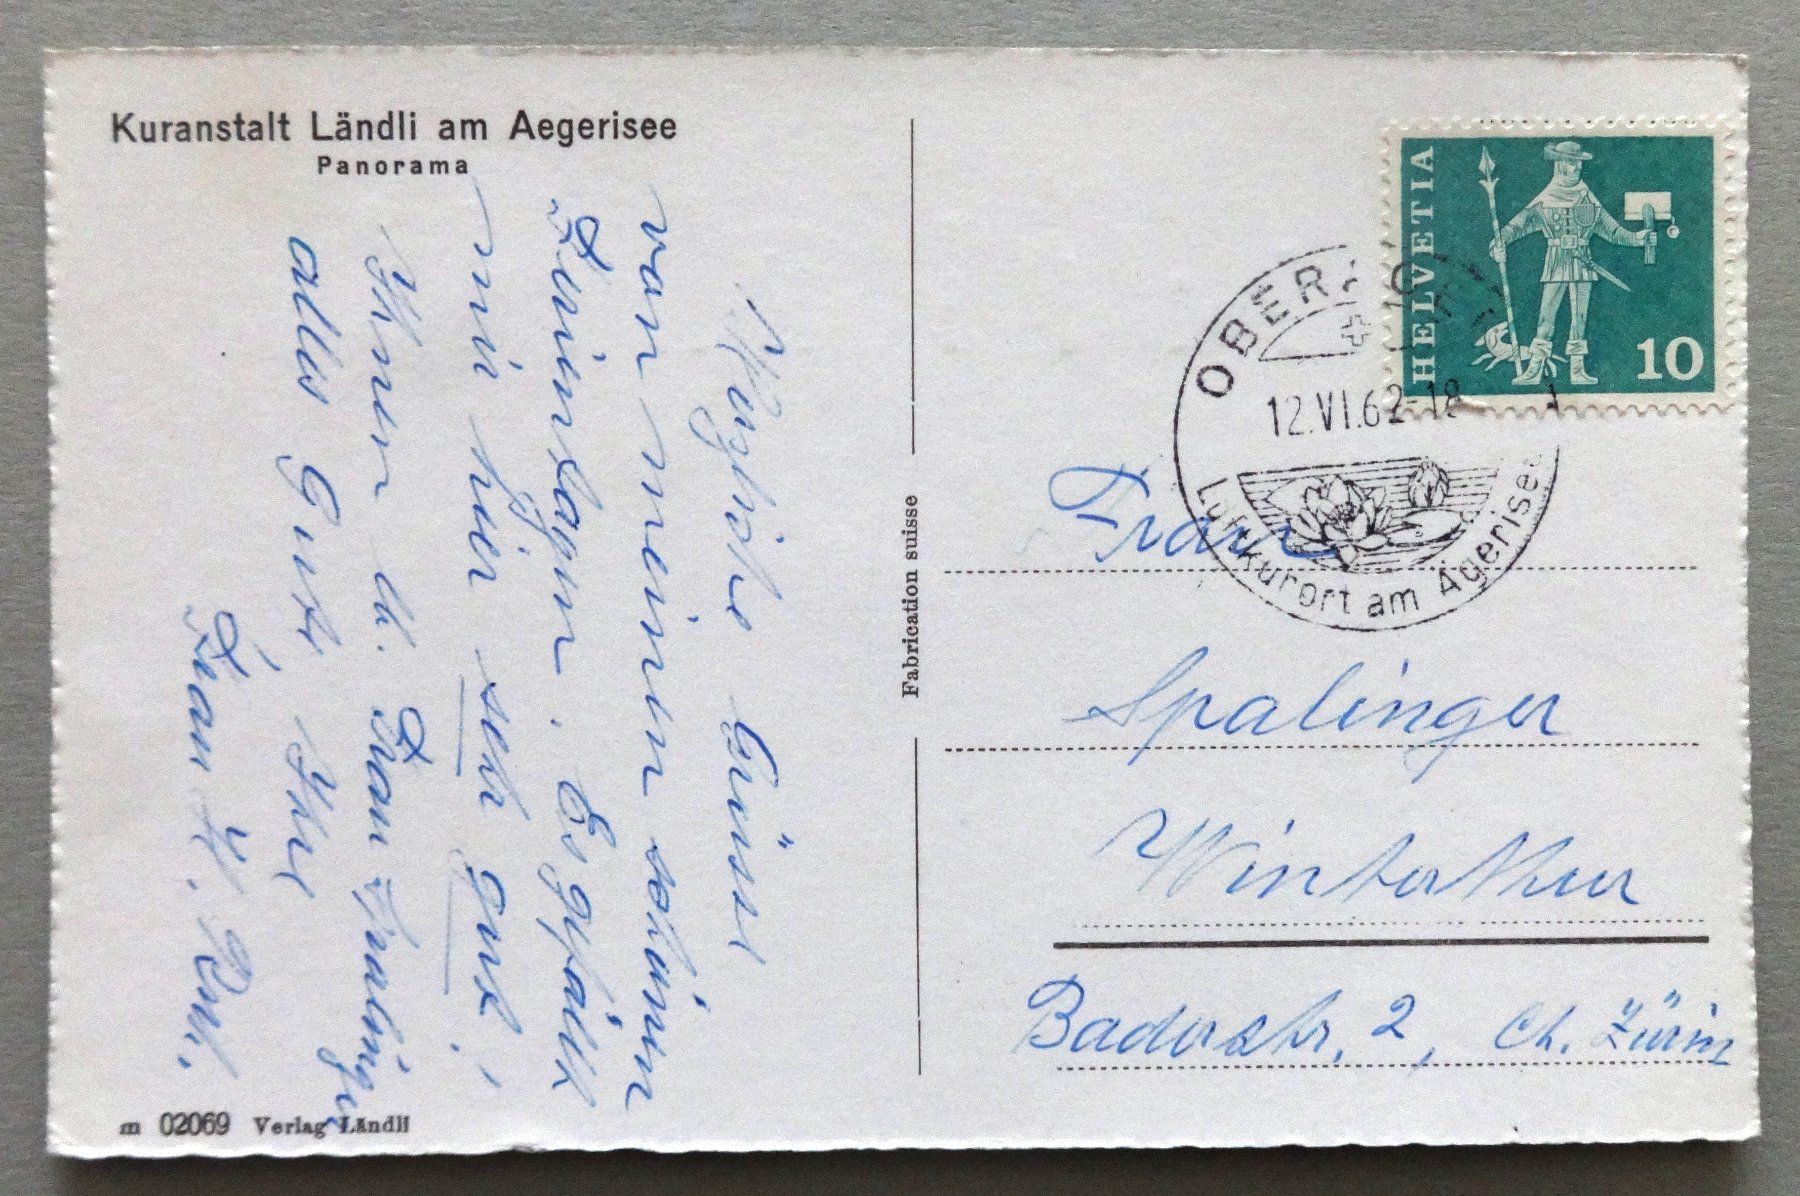 Kuranstalt Ländli am Aegerisee
Panorama
Herzliche Grüsse
von meinen schönen
Ferientagen. Es gefällt
mir hier sehr gut!
Ihnen u. Frau
alles Gute Ihre
Frau H.
m 02069 Verlag Ländli
Fabrication suisse
HELVETIA
10
OBERÄGERI
12.VI.62-18
Luftkurort am Ägerisee
Frau
Spalinger
Winterthur
Baderstr. 2,